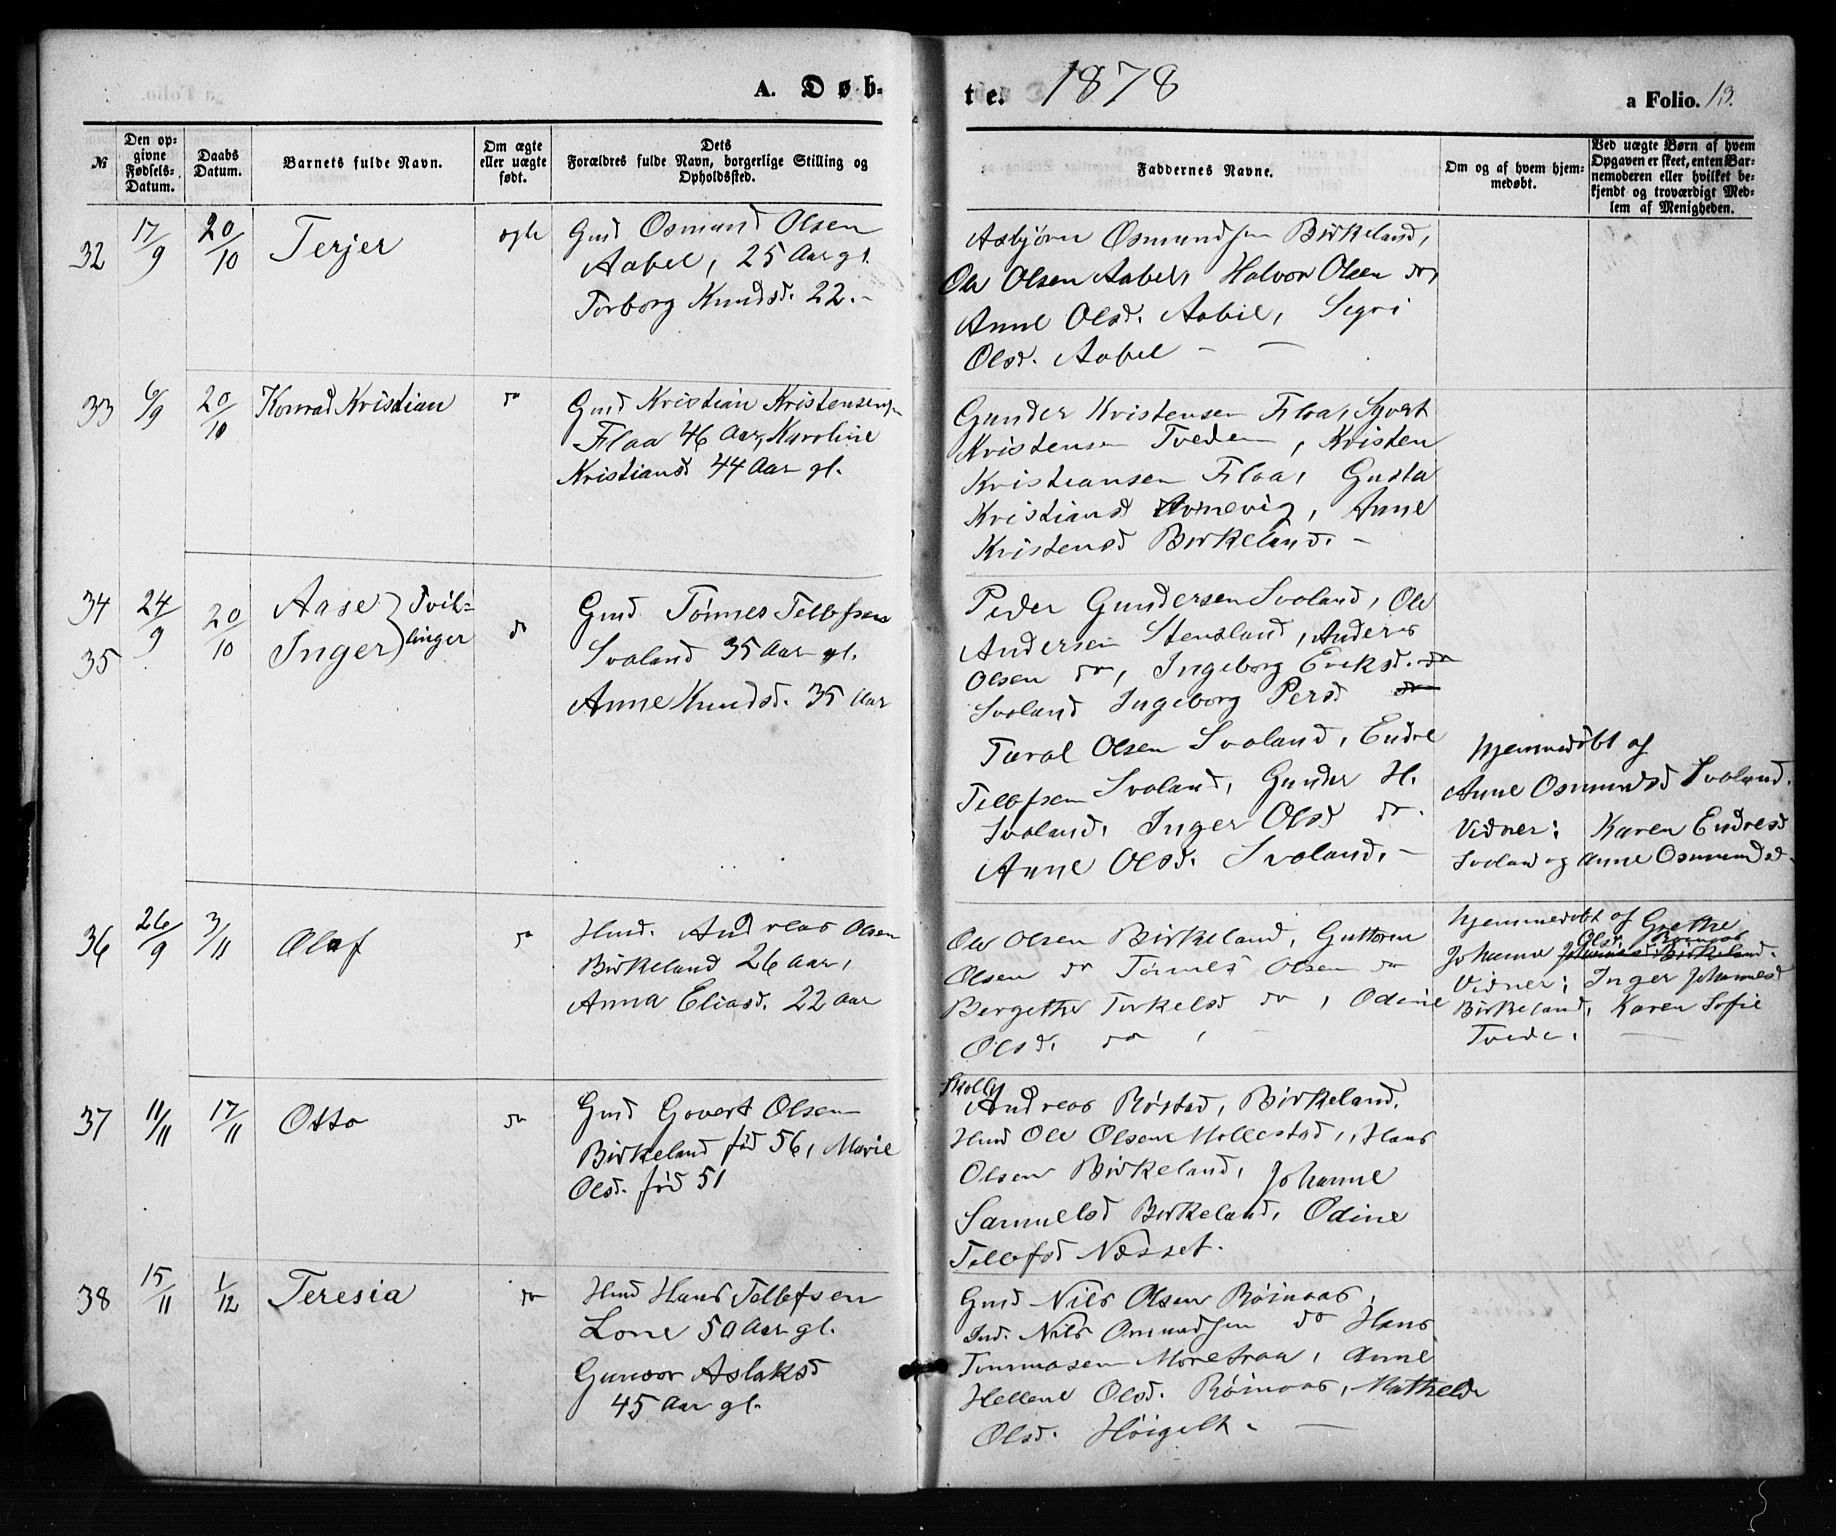 A. Døb-
te. 1878
a Folio. 13.
№
Den op-
givne
Fødsels-
Datum.
Daabs
Datum.
Barnets fulde Navn.
Om ægte
eller uægte
født.
Dets
Forældres fulde Navn, borgerlige Stilling og
Opholdssted.
Faddernes Navne.
Om og af hvem hjem-
medøbt.
Ved uægte Børn af hvem
Opgaven er skeet, enten Bar-
nemoderen eller hvilket be-
kjendt og troværdigt Med-
lem af Menigheden.
32 17/9 20/10 Terjer ægte
Gmd Osmund Olsen
Aabel, 25 Aar gl.
Torborg Knudsd. 22.-
Asbjørn Osmundsen Birkeland,
Ole Olsen Aabel, Halvor Olsen do,
Anne Olsd. Aabel, Segri
Olsd. Aabel -
33 6/9 20/10 Konrad Kristian do
Gmd Kristian Kristensen
Flaa 46 Aar, Karoline
Kristiansd 44 Aar gl.
Gunder Kristensen Flaa, Syvert
Kristensen Tveden, Kristen
Kristiansen Flaa, Gusta
Kristiansd, Anne
Kristensd Birkeland. -
34 24/9 20/10 Aase } Tvil-
35 Inger } linger do
Gmd Tønnes Tellefsen
Svaland 35 Aar gl.
Anne Knudsd. 35 Aar
Peder Gundersen Svaland, Ole
Andersen Stensland, Anders
Olsen do, Ingeborg Eriksd. do
Svaland Ingeborg Persd do
Taral Olsen Svaland, Endre
Tellefsen Svaland, Gunder H.
Svaland, Inger Olsd do.
Anne Olsd. Svaland. -
hjemmedøbt af
Anne Osmundsd Svaland.
Vidner: Karen Endresd
Svaland og Anne Osmundsd.
36 26/9 3/11 Olaf do
Hmd. Andreas Olsen
Birkeland 26 Aar,
Anna Eliasd. 22 Aar
Ole Olsen Birkeland, Guttorm
Olsen do Tønnes Olsen do
Bergethe Terkelsd do, Odine
Olsd. do,
hjemmedøbt af Grethe
Olsd. Røinaas
Johanne Johannesd Birkeland.
Vidner: Inger Johannesd
Birkeland, Karen Sofie
Tvede.
37 11/11 17/11 Otto do
Gmd Govert Olsen
Birkeland fød 56, Marie
Olsd. fød 51
Andreas Røstad, Birkeland,
Hmd Ole Olsen Mollestad, Hans
Olsen Birkeland, Johanne
Samuelsd Birkeland, Odine
Tellefsd Næsset.
38 15/11 1/12 Teresia do
Hmd Hans Tellefsen
Lone 50 Aar gl.
Gunvor Aslaksd
45 Aar gl.
Gmd Nils Olsen Røinaas,
Ind. Nils Omundsen do Hans
Tommasen Moretraa, Anne
Hellene Olsd. Røinaas, Mathelde
Olsd. Høigelt. -